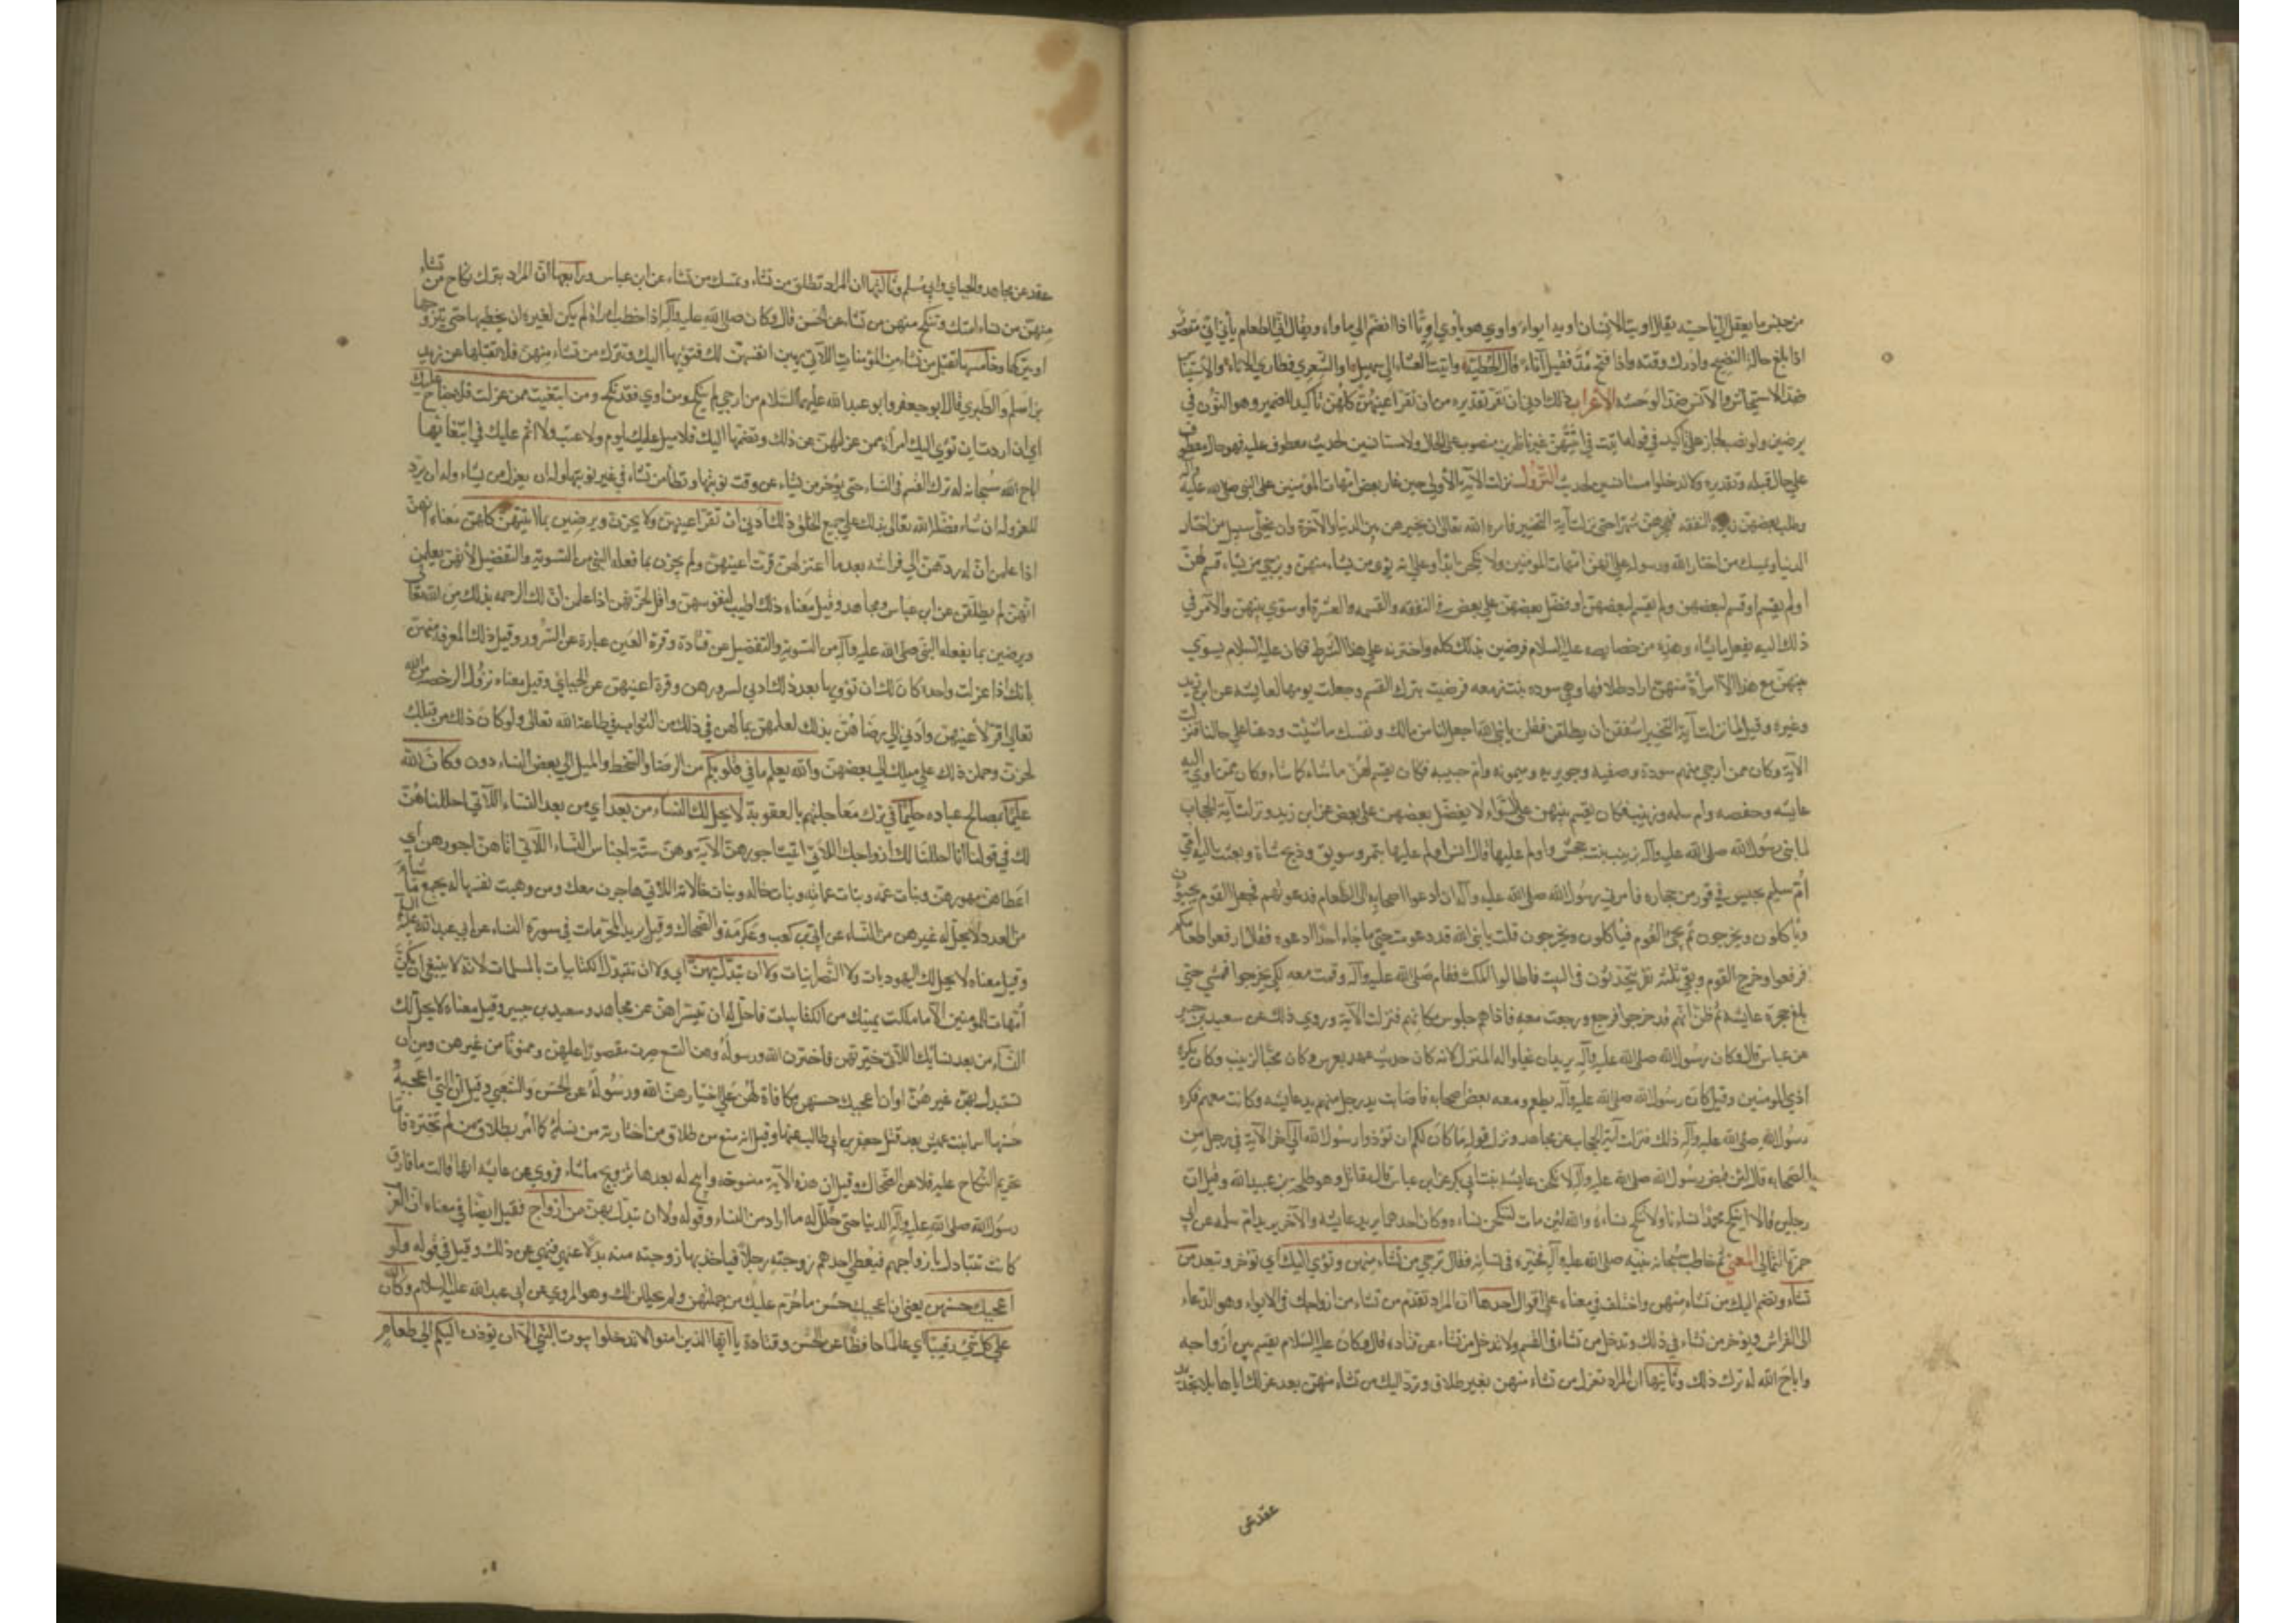 من جنس ما يعقل الي احد يقال اويت الانسان اويه ايواء واوي هو ياوي اويا اذا انضم الي ماواه ويقال اني الطعام يأني اني مقصور
اذا بلغ حال النضج وادرك وقته واذا فتح مد فقيل آناء قال الحطيئة وآنيت العشاء الي سهيل او الشعري فطال بي الاناء والاستيناس
ضد الاستيحاش والانس ضد الوحشه الاعراب ذلك ادني ان تقر تقديره من ان تقر اعينهن كلهن تأكيد للضمير وهو النون في
يرضين ولو نصب لجاز علي تأكيد في قوله آتيتهن غير ناظرين منصوب علي الحال ولا مستانسين لحديث معطوف عليه فهو حال معطوف
علي حال قبله وتقديره ولا تدخلوا مستانسين لحديث النزول نزلت الآية الأولي حين غار بعض امهات المؤمنين علي النبي صلي الله عليه وآله
وطلب بعضهن زيادة النفقه فهجرهن شهرا حتي نزلت آية التخيير فامره الله تعالي ان يخيرهن بين الدنيا والآخرة وان يخلي سبيل من اختار
الدنيا ويمسك من اختار الله ورسوله علي انهن امهات المومنين ولا ينكحن ابدا وعلي انه يؤوي من يشاء منهن ويرجي من يشاء قسم لهن
او لم يقسم او قسم لبعضهن ولم يقسم لبعضهن او فضل بعضهن علي بعض في النفقه والقسمه والعشرة او سوي بينهن والامر في
ذلك اليه يفعل ما يشاء وهذه من خصايصه عليه السلام فرضين بذلك كله واخترنه علي هذا الشرط فكان عليه السلام يسوي
بينهن مع هذا الا امرأة منهن اراد طلاقها وهي سوده بنت زمعه فرضيت بترك القسم وجعلت يومها لعايشه عن ابن زيد
وغيره وقيل لما نزلت آية التخيير اشفقن ان يطلقن فقلن يا نبي الله اجعل لنا من مالك ونفسك ما شئت ودعنا علي حالنا فنزلت
الآية وكان ممن ارجي منهم سودة وصفيه وجويريه وميمونه وام حبيبه فكان يقسم لهن ما شاء كما شاء وكان ممن اوي اليه
عايشه وحفصه وام سلمه وزينب فكان يقسم بينهن علي السواء لا يفضل بعضهن علي بعض عن ابن زيد ونزلت آية الحجاب
لما بني رسول الله صلي الله عليه وآله بزينب بنت جحش واولم عليها قال انس اولم عليها بتمر وسويق وذبح شاة وبعثت اليه امي
أم سليم بحيس في تور من حجاره فامرني رسول الله صلي الله عليه وآله ان ادعوا اصحابه الي الطعام فدعوتهم فجعل القوم يجيئون
وياكلون ويخرجون ثم يجئ القوم فياكلون ويخرجون قلت يا نبي الله قد دعوت حتي ما اجد احدا ادعوه فقال ارفعوا طعامكم
فرفعوا وخرج القوم وبقي ثلثه نفر يتحدثون في البيت فاطالوا المكث فقام صلي الله عليه وآله وقمت معه لكي يخرجوا فمشي حتي
بلغ حجرة عايشه ثم ظن انهم قد خرجوا فرجع ورجعت معه فاذا هم جلوس مكانهم فنزلت الآية وروي ذلك عن سعيد بن جبير
عن عباس قال وكان رسول الله صلي الله عليه وآله يريد ان يخلوا له المنزل لانه كان حديث عهد بعرس وكان محبا لزينب وكان يكره
اذي المومنين وقيل كان رسول الله صلي الله عليه وآله يطعم ومعه بعض اصحابه فاصابت يد رجل منهم يد عايشه وكانت معهم فكره
رسول الله صلي الله عليه وآله ذلك فنزلت آية الحجاب عن مجاهد ونزل قوله ما كان لكم ان تؤذوا رسول الله الي آخر الآية في رجل من
الصحابه قال لئن قبض رسول الله صلي الله عليه وآله لانكحن عايشه بنت ابي بكر عن ابن عباس قال مقاتل وهو طلحه بن عبيد الله وقيل ان
رجلين قالا اينكح محمد نساءنا ولا ننكح نساءه والله لئن مات لننكحن نساءه وكان احدهما يريد عايشه والآخر يريد ام سلمه عن ابي
حمزة الثمالي المعني ثم خاطب سبحانه نبيه صلي الله عليه وآله يخيره في نسائه فقال ترجي من تشاء منهن وتؤي اليك اي تؤخر وتبعد من
تشاء وتضم اليك من تشاء منهن واختلف في معناه علي اقوال احدها ان المراد تقدم من تشاء من ازواجك في الايواء وهو الدعاء
الي الفراش وتؤخر من تشاء في ذلك وتدخل من تشاء في القسم ولا تدخل من تشاء عن قتاده قال وكان عليه السلام يقسم بين ازواجه
واباح الله له ترك ذلك وثانيها ان المراد تعزل من تشاء منهن بغير طلاق وترد اليك من تشاء منهن بعد عزلك اياها بلا تجديد
عقد عن
عقد عن مجاهد والجبائي وابي مسلم وثالثها ان المراد تطلق من تشاء وتمسك من تشاء عن ابن عباس ورابعها ان المراد تترك نكاح من تشاء
منهن من نساء امتك وتنكح منهن من تشاء عن الحسن قال وكان صلي الله عليه وآله اذا خطب امرأة لم يكن لغيره ان يخطبها حتي يتزوجها
او يتركها وخامسها تقبل من تشاء من المؤمنات اللاتي يهبن انفسهن لك فتؤيها اليك وتترك من تشاء منهن فلا تقبلها عن زيد
بن اسلم والطبري قال ابو جعفر وابو عبد الله عليهما السلام من ارجي لم ينكح ومن اوي فقد نكح ومن ابتغيت ممن عزلت فلا جناح عليك
اي ان اردت ان تؤي اليك امرأة ممن عزلتهن عن ذلك وتضمها اليك فلا سبيل عليك بلوم ولا عتب ولا اثم عليك في ابتغائها
اباح الله سبحانه له ترك القسم في النساء حتي يؤخر من يشاء عن وقت نوبتها ويطأ من يشاء في غير نوبتها وله ان يعزل من يشاء وله ان يرد
المعزوله ان شاء فضله الله تعالي بذلك علي جميع الخلق ذلك ادني ان تقر اعينهن ولا يحزن ويرضين بما اتيتهن كلهن معناه انهن
اذا علمن ان له ردهن الي فراشه بعد ما اعتزلهن قرت اعينهن ولم يحزن بما فعله النبي من التسوية والتفضيل لأنهن يعلمن
انهن لم يطلقن عن ابن عباس ومجاهد وقيل معناه ذلك اطيب لنفوسهن واقل لحزنهن اذا علمن ان لك الرخصه بذلك من الله تعالي
ويرضين بما يفعله النبي صلي الله عليه وآله من التسوية والتفضيل عن قتادة وقرة العين عبارة عن السرور وقيل ذلك المعرفه منهن
بانك اذا عزلت واحده كان لك ان تؤويها بعد ذلك ادني لسرورهن وقرة اعينهن عن الجبائي وقيل معناه نزول الرخصه من الله
تعالي اقر لأعينهن وادني الي رضاهن بذلك لعلمهن بما لهن في ذلك من الثواب في طاعة الله تعالي ولو كان ذلك من قبلك
لحزن وحملن ذلك علي ميلك الي بعضهن والله يعلم ما في قلوبكم من الرضا والسخط والميل الي بعض النساء دون وكان الله
عليما بمصالح عباده حليما في ترك معاجلتهم بالعقوبة لا يحل لك النساء من بعد اي من بعد النساء اللاتي احللناهن
لك في قولنا انا احللنا لك ازواجك اللاتي اتيت اجورهن الآية وهن ستة اجناس النساء اللاتي اتاهن اجورهن اي
اعطاهن مهورهن وبنات عمه وبنات عماته وبنات خاله وبنات خالاته اللاتي هاجرن معك ومن وهبت نفسها له يجمع ما شاء
من العدد لا يحل له غيرهن من النساء عن ابي بن كعب وعكرمة والضحاك وقيل يريد المحرمات في سورة النساء عن ابي عبد الله عليه السلام
وقيل معناه لا يحل لك اليهوديات ولا النصرانيات ولا ان تبدل بهن اي ولا ان تتبدل الكتابيات بالمسلمات لانه لا ينبغي ان يكن
امهات المومنين الا ما ملكت يمينك من الكتابيات فاحل له ان يتسراهن عن مجاهد وسعيد بن جبير وقيل معناه لا يحل لك
النساء من بعد نسائك اللاتي خيرتهن فاخترن الله ورسوله وهن التسع صرت مقصورا عليهن وممنوعا من غيرهن ومن ان
تستبدل بهن غيرهن ولو اعجبك حسنهن مكافاة لهن علي اختيارهن الله ورسوله عن الحسن والشعبي وقيل ان التي اعجبه
حسنها اسما بنت عميس بعد قتل جعفر بن ابي طالب عنها وقيل انه منع من طلاق من اختارته من نسائه كما أمر بطلاق من لم تختره فاما
تحريم النكاح عليه فلا عن الضحاك وقيل ان هذه الآية منسوخه وابيح له بعدها تزويج ما شاء فروي عن عايشه انها قالت ما فارق
رسول الله صلي الله عليه وآله الدنيا حتي حلل له ما اراد من النساء وقوله ولا ان تبدل بهن من ازواج فقيل ايضا في معناه ان العرب
كانت تتبادل بازواجهم فيعطي احدهم زوجته رجلا فياخذ بها زوجته منه بدلا عنها فنهي عن ذلك وقيل في قوله ولو
اعجبك حسنهن يعني ان اعجبك حسن ما حرم عليك من جملتهن ولم يحللن لك وهو المروي عن ابي عبد الله عليه السلام وكان الله
علي كل شئ رقيبا اي عالما حافظا عن الحسن وقتادة يا ايها الذين امنوا لا تدخلوا بيوت النبي الا ان يؤذن اليكم الي طعام